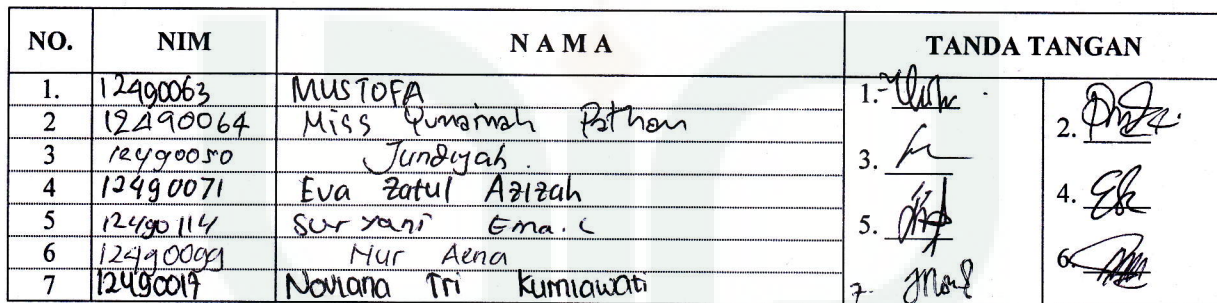 NO. NIM NAMA TANDA TANGAN
1. 12490063 MUSTOFA 1.
2 12490064 Miss Qumainah Pathan 2.
3 12490050 Jundiyah. 3.
4 12490071 Eva Zatul Azizah 4.
5 12490114 Suryani Ema. 5.
6 12490099 Nur Aena 6.
7 12490017 Noviana Tri Kurniawati 7.